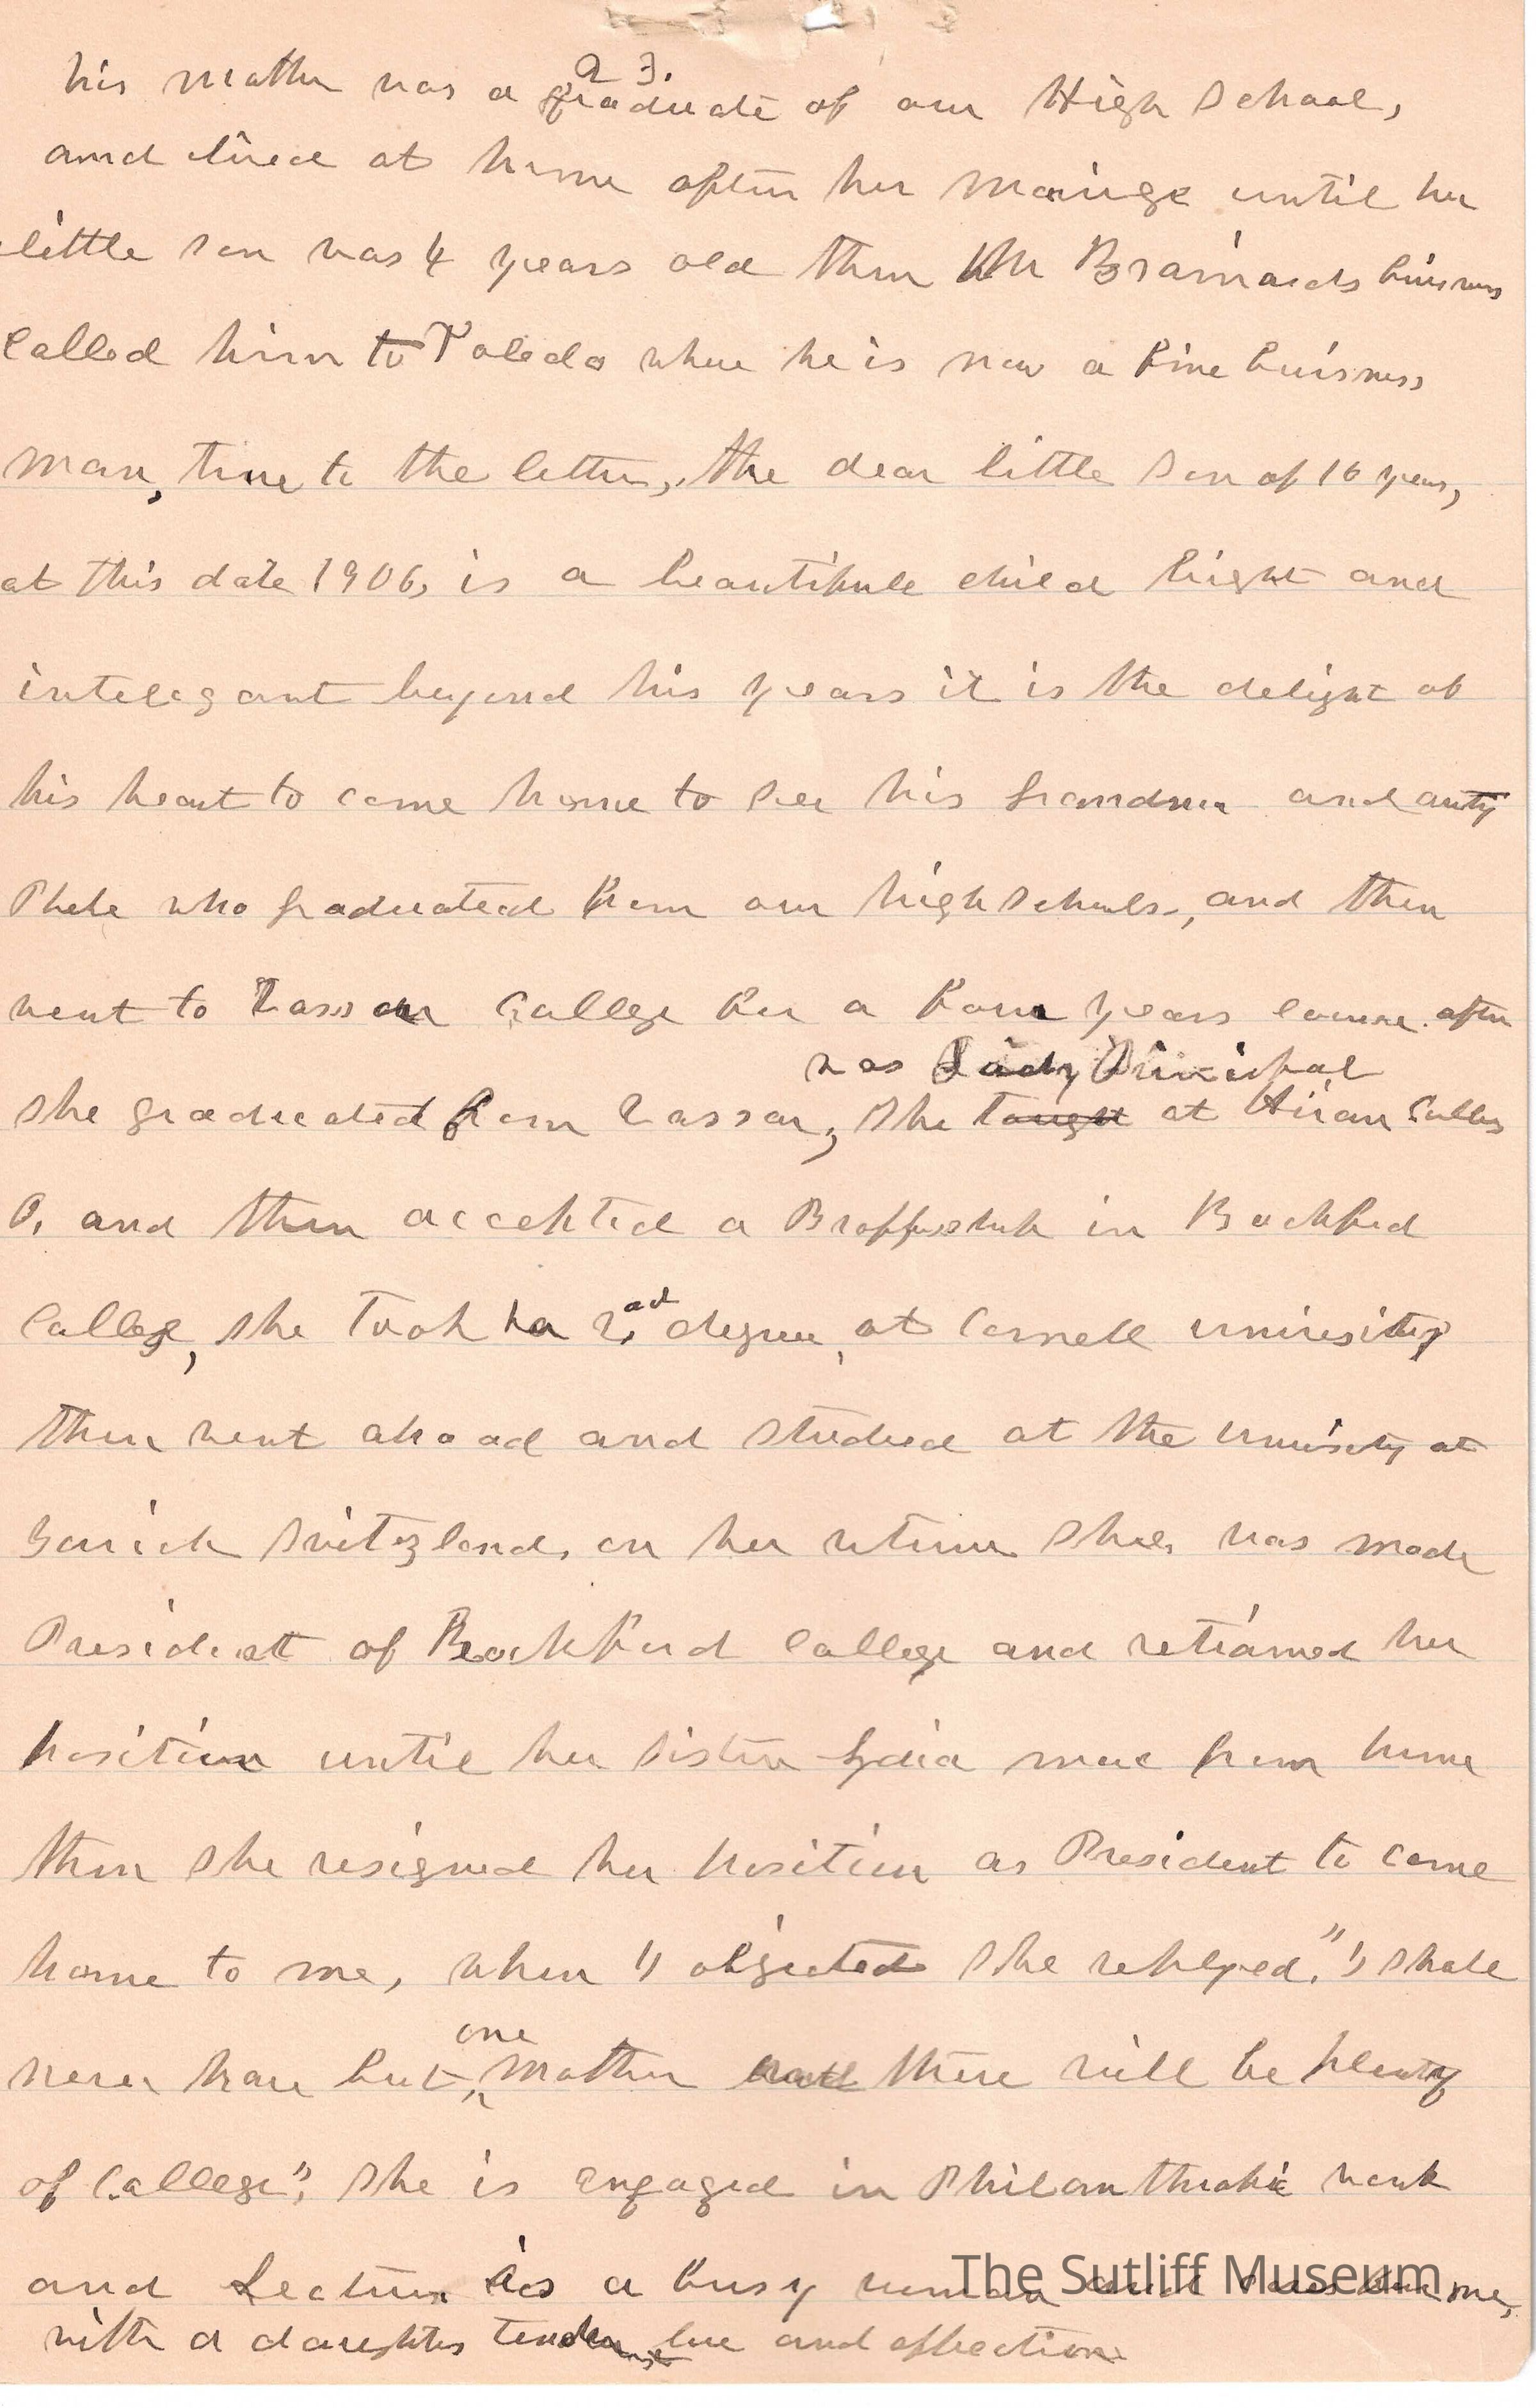 a 3.
his Mother was a graduate of our High School,
and lived at home after her Marige until her
little son was 4 years old then Mr Brainards buisness
called him to Toledo where he is now a fine buisness
man, true to the letter, the dear little Son of 16 years,
at this date 1906, is a beautifule child bright and
intelegant beyond his years it is the delight of
his heart to come home to See his grandma and anty
Phebe who graduated from our high schools, and then
went to Vassar College for a four years course. after
was Lady Principal
she graduated from Vassar, she taught at Hiram College
O. and then accepted a Proffesship in Rockford
College, she took her 2nd degree, at Cornell university
then went abroad and studied at the university at
Zurich Switzland, on her return she was made
President of Rockford College and retained her
position until her Sister Lydia went from home
then she resigned her position as President to come
home to me, when I objected she replyed, "I shall
one
never have but Mother there will be plenty
of College", she is engaged in Philanthropic work
and Lecturs is a busy woman and me,
with a daughters tender love and affection
The Sutliff Museum